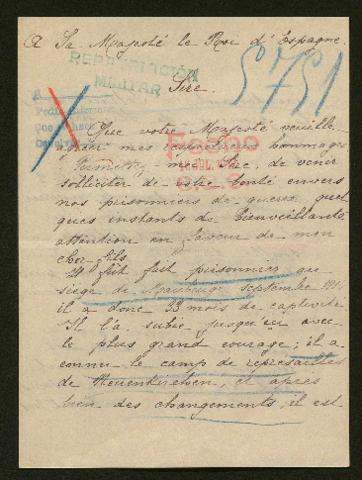 A Sa Majesté le Roi d'Espagne.
REPATRIACION
MILITAR
5751
Sire.
Que votre Majesté veuille
mes hommages
Permettez moi, Sire, de venir
solliciter de votre bonté envers
nos prisonniers de guerre quel
ques instants de bienveillante
attention en faveur de mon
cher fils
Il fut fait prisonnier au
siège de Maubeuge septembre 1914
il a donc 33 mois de captivité
Il l'a subie jusqu'ici avec
le plus grand courage; il a
connu le camp de représailles
de et après
bien des changements, il est